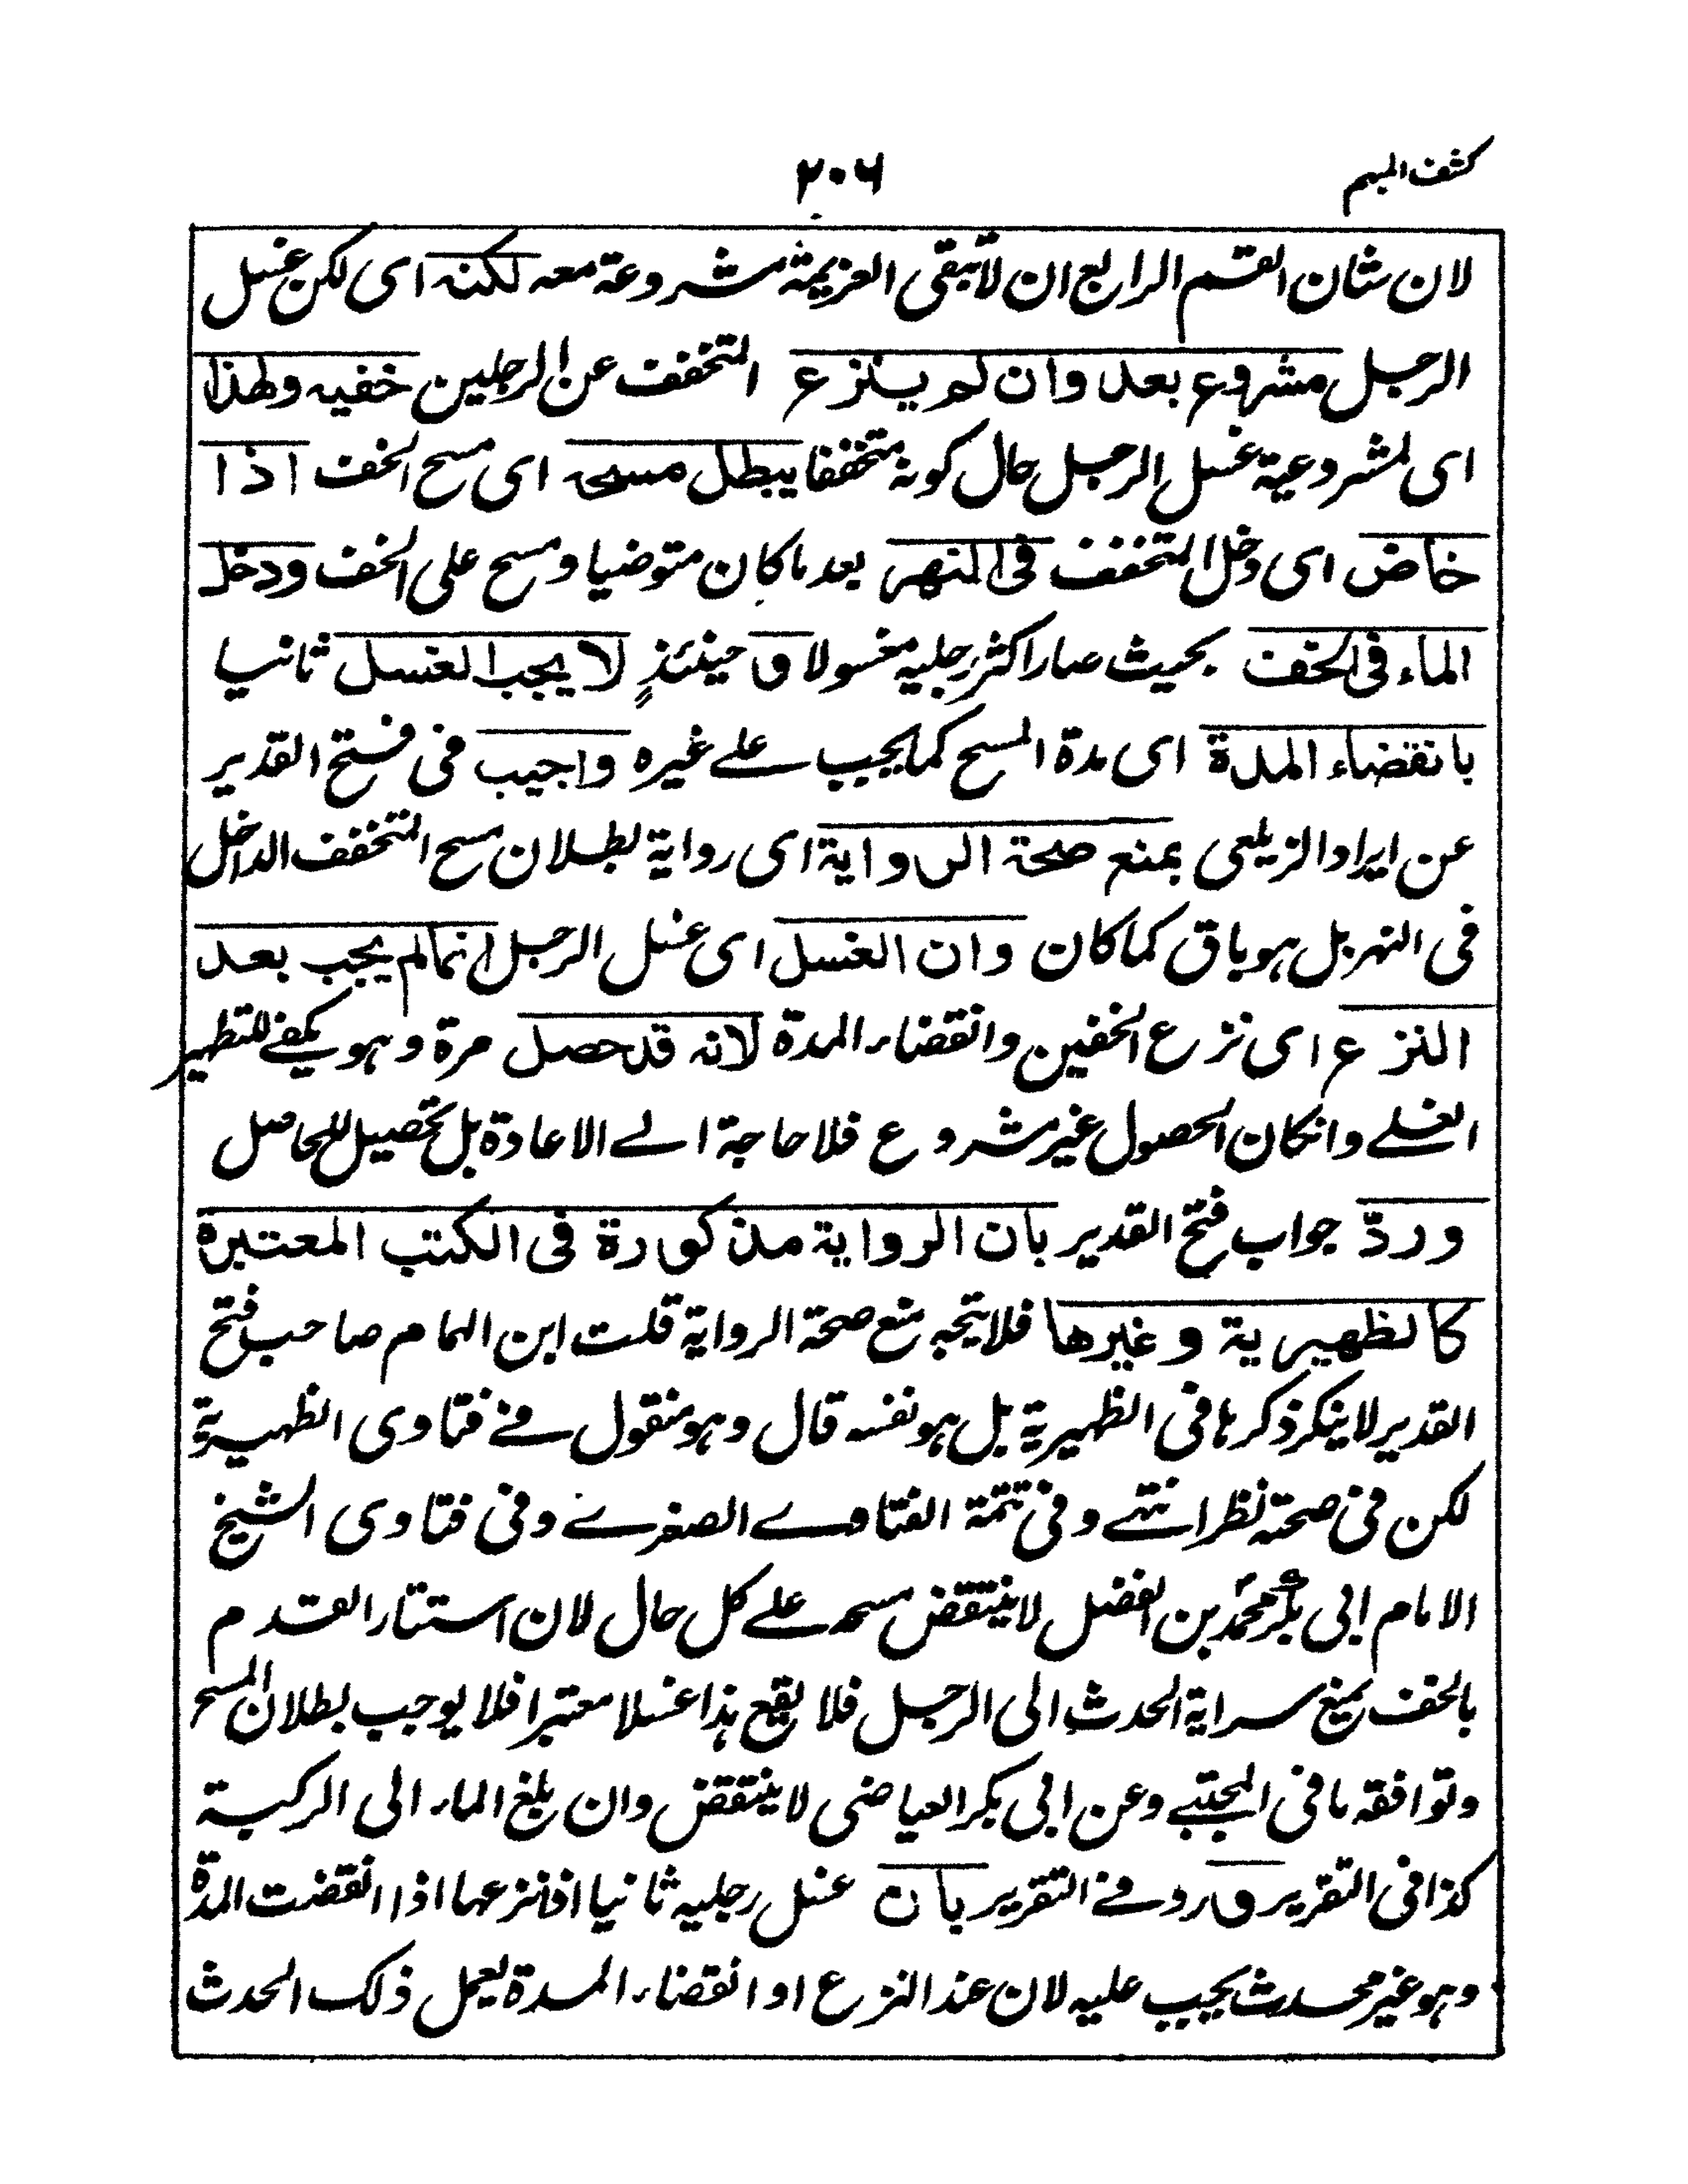 كشف المبهم
٢٠٦
لان شان القسم الرابع ان لا تبقى العزيمة مشروعة معه لكنه اى لكن غسل
الرجل مشروع بعد وان لم ينزع المتخفف عن الرجلين خفيه ولهذا
اى لمشروعية غسل الرجل حال كونه متخففا يبطل مسحه اى مسح الخف اذا
خاض اى دخل المتخفف فى النهر بعد ما كان متوضيا و مسح على الخف ودخل
الماء فى الخف بحيث صار اكثر رجليه مغسولا و حينئذٍ لا يجب الغسل ثانيا
بانقضاء المدة اى مدة المسح كما يجب على غيره واجيب فى فتح القدير
عن ايراد الزيلعى بمنع صحة الرواية اى رواية بطلان مسح المتخفف الداخل
فى النهر بل هو باق كما كان وان الغسل اى غسل الرجل انما لم يجب بعد
النزع اى نزع الخفين وانقضاء المدة لانه قد حصل مرة و هو يكفى للتطهير
الغسلى وان كان الحصول غير مشروع فلا حاجة الى الاعادة بل تحصيل للحاصل
وردّ جواب فتح القدير بان الرواية مذكورة فى الكتب المعتبرة
كالظهيرية وغيرها فلا يتجه منع صحة الرواية قلت ابن الهمام صاحب فتح
القدير لا ينكر ذكرها فى الظهيرية بل هو نفسه قال وهو منقول فى فتاوى الظهيرية
لكن فى صحته نظر انتهى وفى تتمة الفتاوى الصغرى وفى فتاوى الشيخ
الامام ابى بكر محمد بن الفضل لا ينتقض مسحه على كل حال لان استتار القدم
بالخف يمنع سراية الحدث الى الرجل فلا يقع هذا غسلا معتبرا فلا يوجب بطلان المسح
وتوافقه ما فى المجتبى وعن ابى بكر العياضى لا ينتقض وان بلغ الماء الى الركبة
كذا فى التقرير و رد فى التقرير بان غسل رجليه ثانيا اذا نزعهما اذا انقضت المدة
وهو غير محدث يجب عليه لان عند النزع او انقضاء المدة يعمل ذلك الحدث